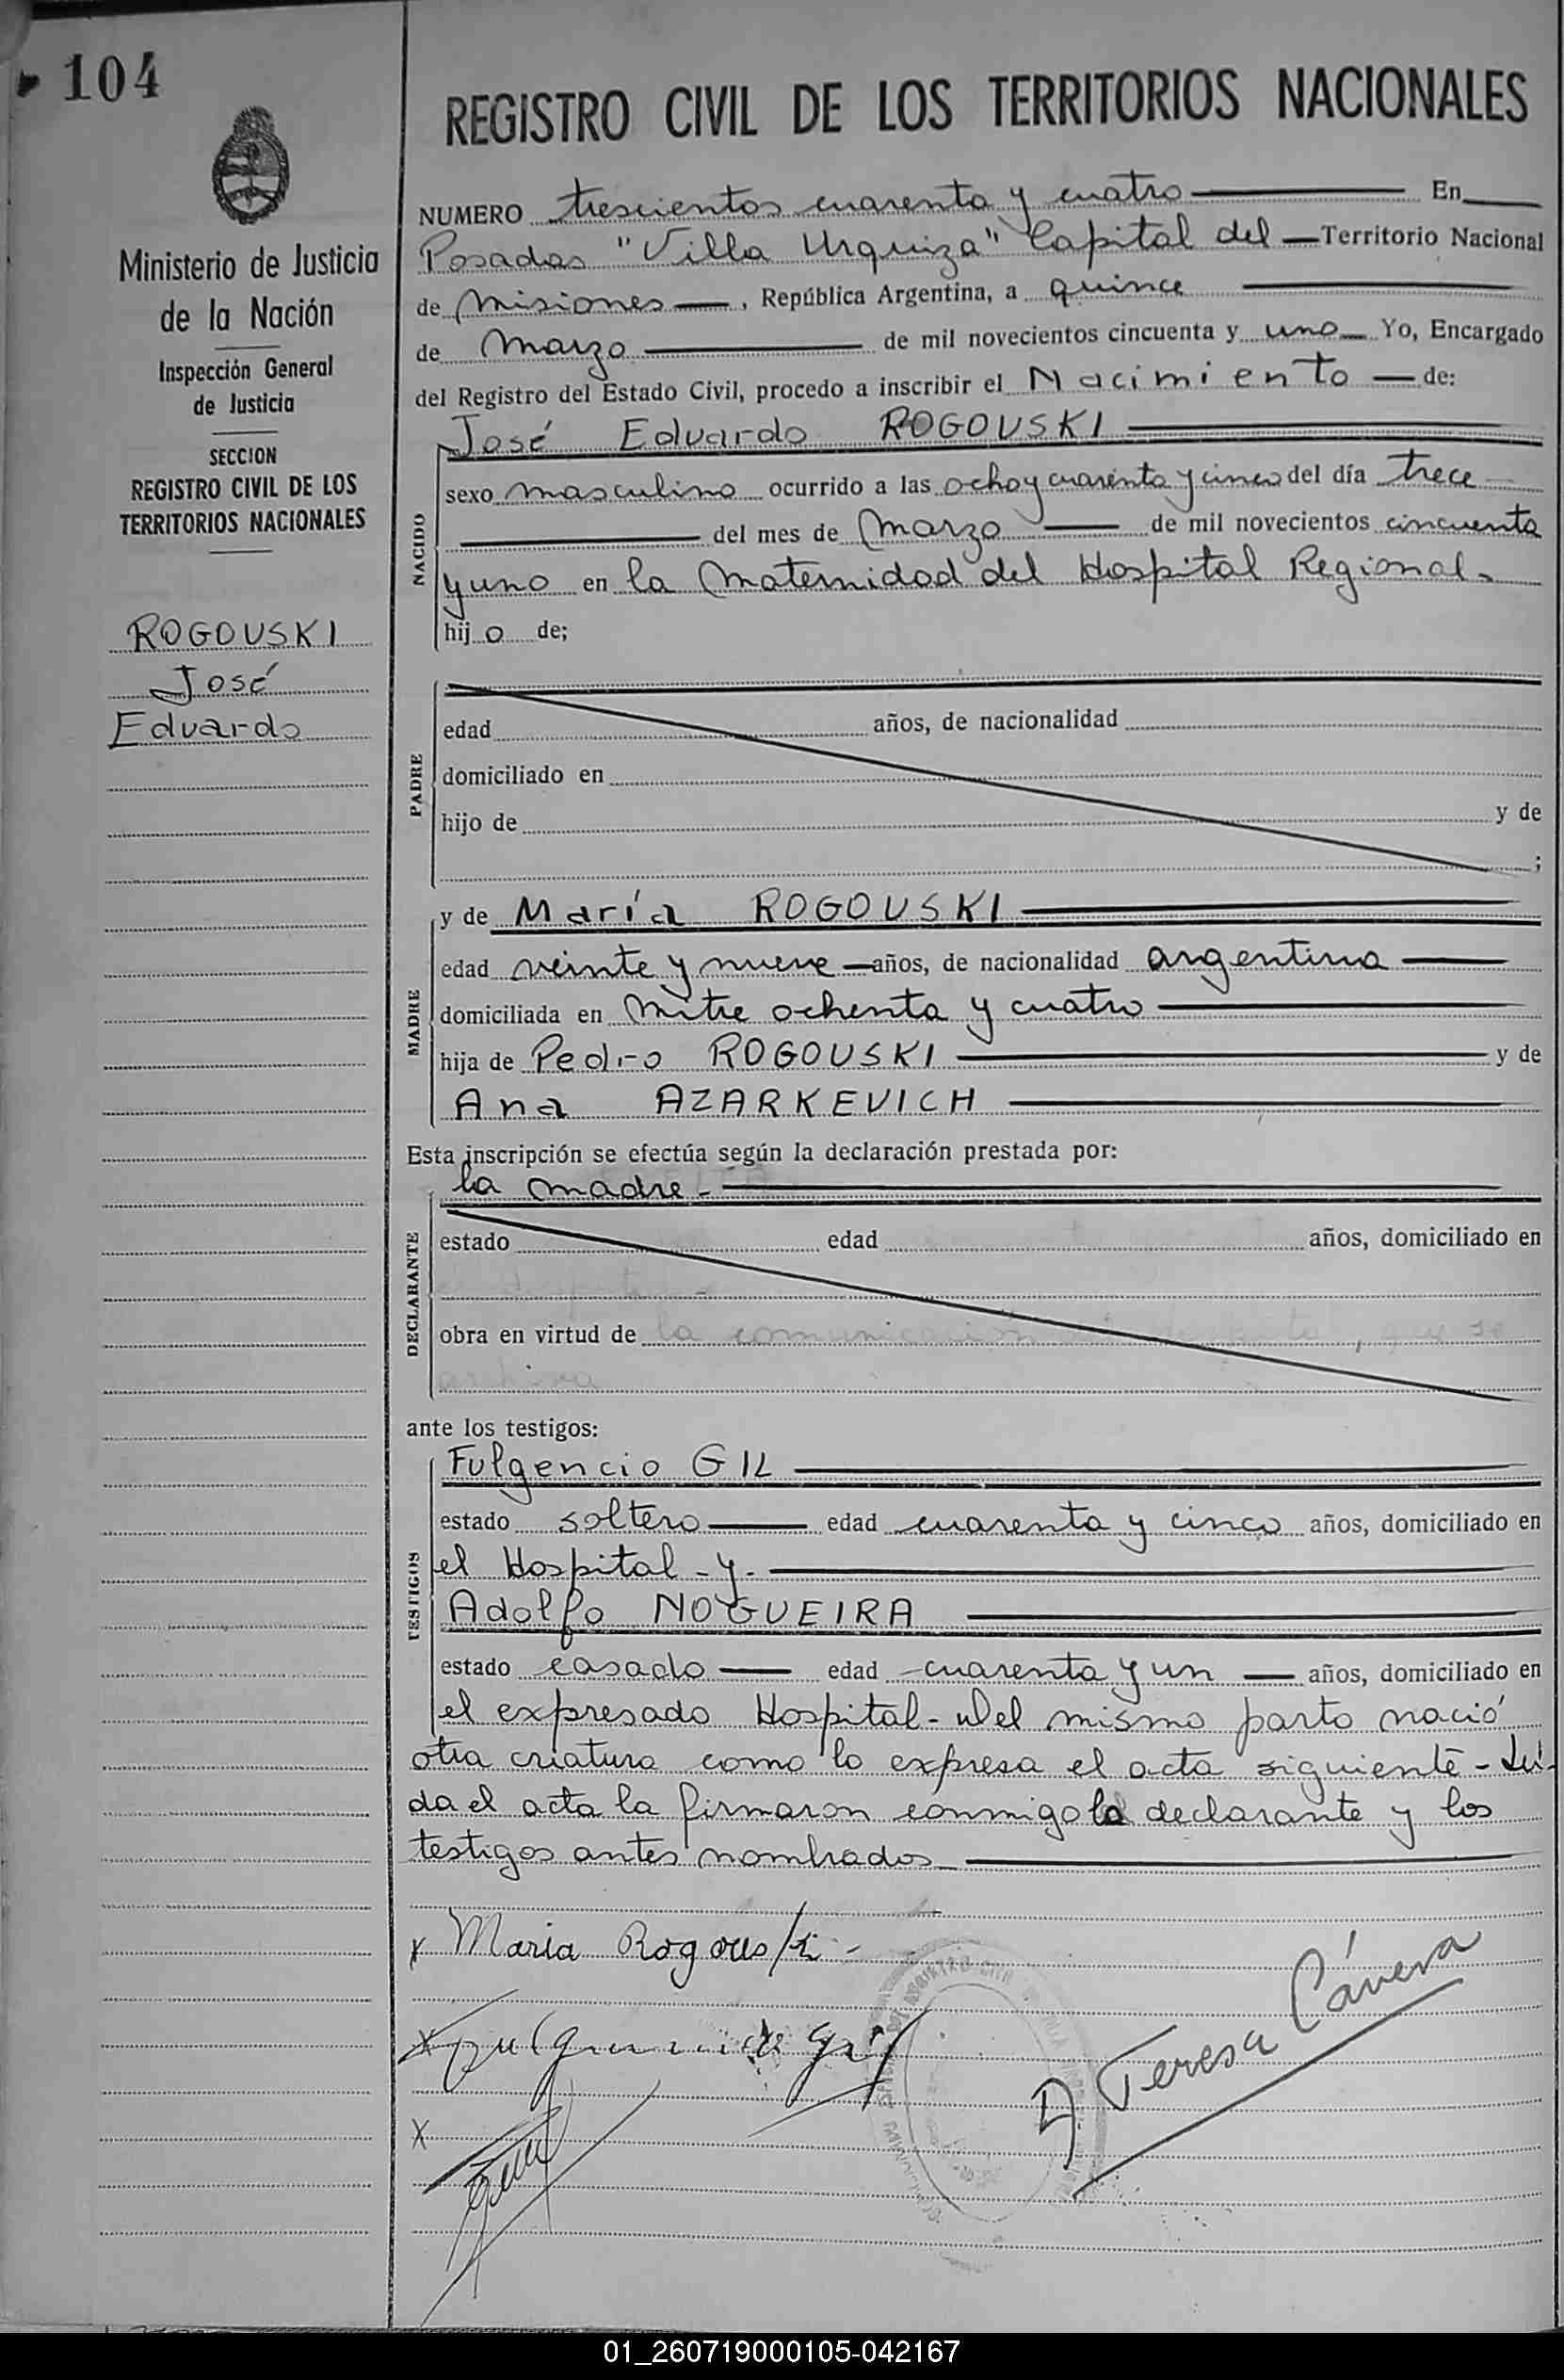 104
REGISTRO CIVIL DE LOS TERRITORIOS NACIONALES
Ministerio de Justicia
de la Nación
Inspección General
de Justicia
SECCION
REGISTRO CIVIL DE LOS
TERRITORIOS NACIONALES
ROGOUSKI
José
Eduardo
NUMERO trescientos cuarenta y cuatro En
Posadas "Villa Urquiza" Capital del Territorio Nacional
de Misiones, República Argentina, a quince
de Marzo de mil novecientos cincuenta y uno Yo, Encargado
del Registro del Estado Civil, procedo a inscribir el Nacimiento de:
NACIDO
José Eduardo ROGOUSKI
sexo masculino ocurrido a las ocho y cuarenta y cinco del día trece
del mes de Marzo de mil novecientos cincuenta
y uno en la Maternidad del Hospital Regional.
hijo de;
PADRE
edad años, de nacionalidad
domiciliado en
hijo de y de
;
MADRE
y de María ROGOUSKI
edad veinte y nueve años, de nacionalidad argentina
domiciliada en Mitre ochenta y cuatro
hija de Pedro ROGOUSKI y de
Ana AZARKEVICH
Esta inscripción se efectúa según la declaración prestada por:
la madre.
DECLARANTE
estado edad años, domiciliado en
obra en virtud de
ante los testigos:
TESTIGOS
Fulgencio GIL
estado soltero edad cuarenta y cinco años, domiciliado en
el Hospital - y -
Adolfo NOGUEIRA
estado casado edad cuarenta y un años, domiciliado en
el expresado Hospital - Del mismo parto nació
otra criatura como lo expresa el acta siguiente - Leí-
da el acta la firmaron conmigo la declarante y los
testigos antes nombrados
x Maria Rogouski -
x Fulgencio Gil
x
A Teresa Cávera
01_260719000105-042167